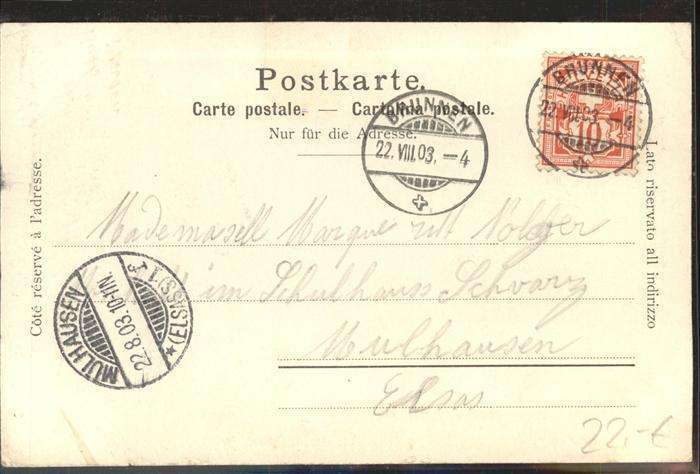 Postkarte.
Carte postale. — Cartolina postale.
Nur für die Adresse.
Côté réservé à l'adresse.
Lato riservato all indirizzo
BRUNNEN
22.VIII.03.–4
BRUNNEN
22.VIII.03.–4
10
MÜLHAUSEN
22.8.03.10-11N.
*(ELSASS)1
Mademasell
im Schulhaus Schwarz
Mulhausen
Elsas
22.-€